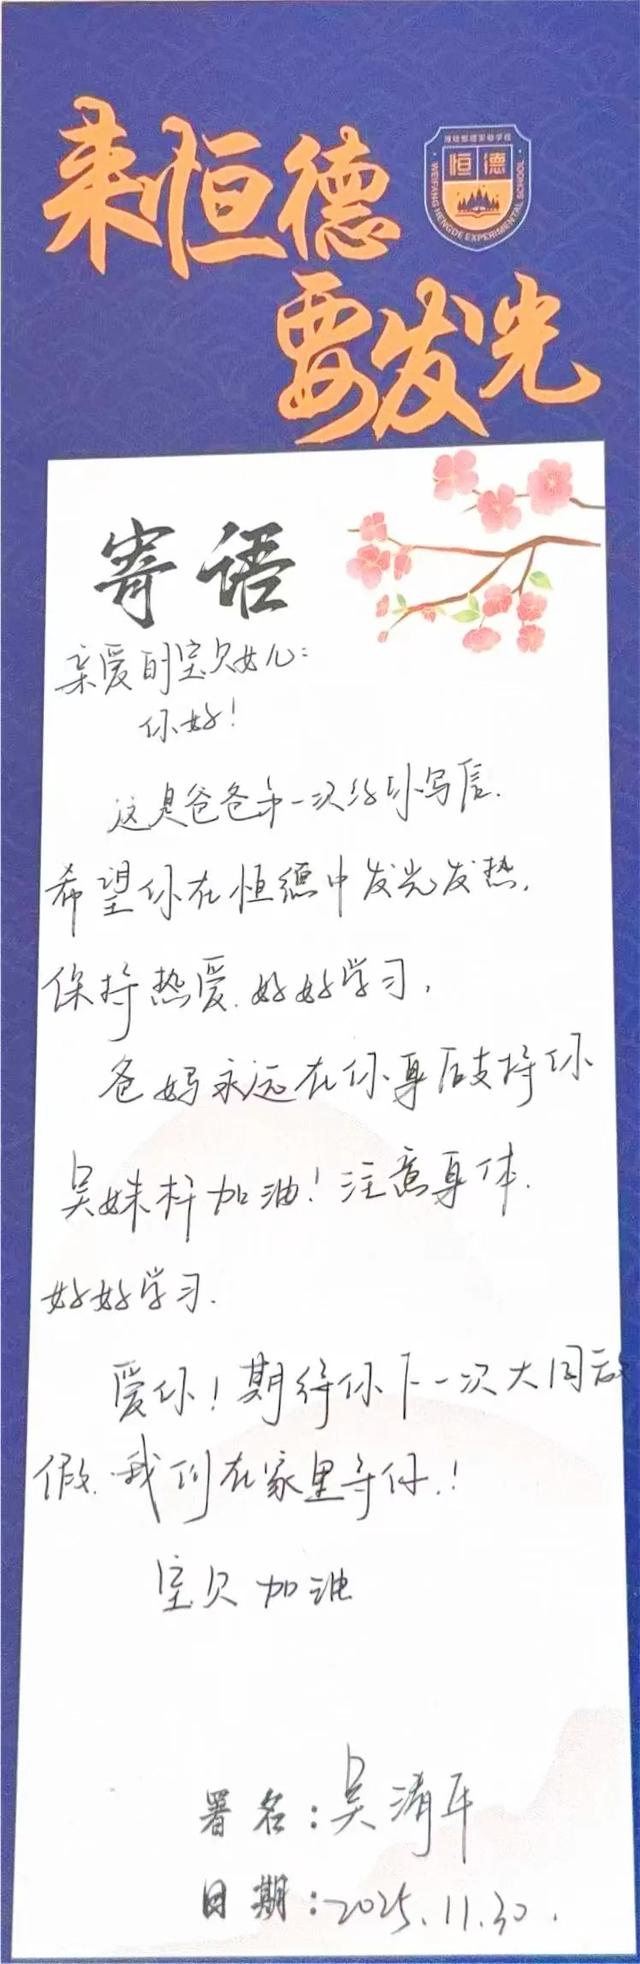 来恒德
潍坊恒德实验学校
恒德
WEIFANG HENGDE EXPERIMENTAL SCHOOL
要发光
寄语
亲爱的宝贝女儿：
你好！
这是爸爸第一次给你写信.
希望你在恒德中发光发热,
保持热爱.好好学习,
爸妈永远在你身后支持你
吴姝杆加油！注意身体.
好好学习.
爱你！期待你下一次大周放
假.我们在家里等你.！
宝贝加油
署名：吴清平
日期：2025.11.30.